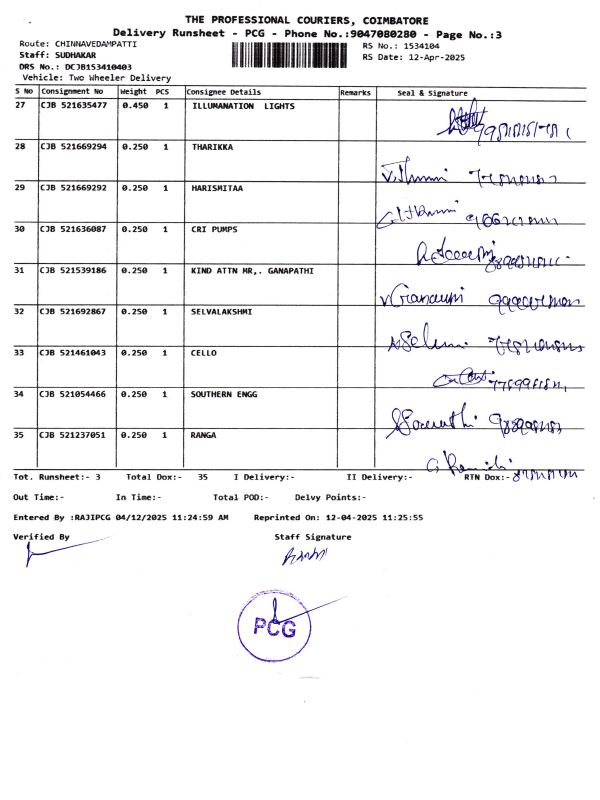 THE PROFESSIONAL COURIERS, COIMBATORE
Delivery Runsheet - PCG - Phone No.:9047080280 - Page No.:3
Route: CHINNAVEDAMPATTI RS No.: 1534104
Staff: SUDHAKAR RS Date: 12-Apr-2025
DRS No.: DCJB153410403
Vehicle: Two Wheeler Delivery
S No Consignment No Weight PCS Consignee Details Remarks Seal & Signature
27 CJB 521635477 0.450 1 ILLUMANATION LIGHTS
28 CJB 521669294 0.250 1 THARIKKA
29 CJB 521669292 0.250 1 HARISMITAA
30 CJB 521636087 0.250 1 CRI PUMPS
31 CJB 521539186 0.250 1 KIND ATTN MR,. GANAPATHI
32 CJB 521692867 0.250 1 SELVALAKSHMI
33 CJB 521461043 0.250 1 CELLO
34 CJB 521054466 0.250 1 SOUTHERN ENGG
35 CJB 521237051 0.250 1 RANGA
Tot. Runsheet:- 3 Total Dox:- 35 I Delivery:- II Delivery:- RTN Dox:-
Out Time:- In Time:- Total POD:- Delvy Points:-
Entered By :RAJIPCG 04/12/2025 11:24:59 AM Reprinted On: 12-04-2025 11:25:55
Verified By Staff Signature
PCG